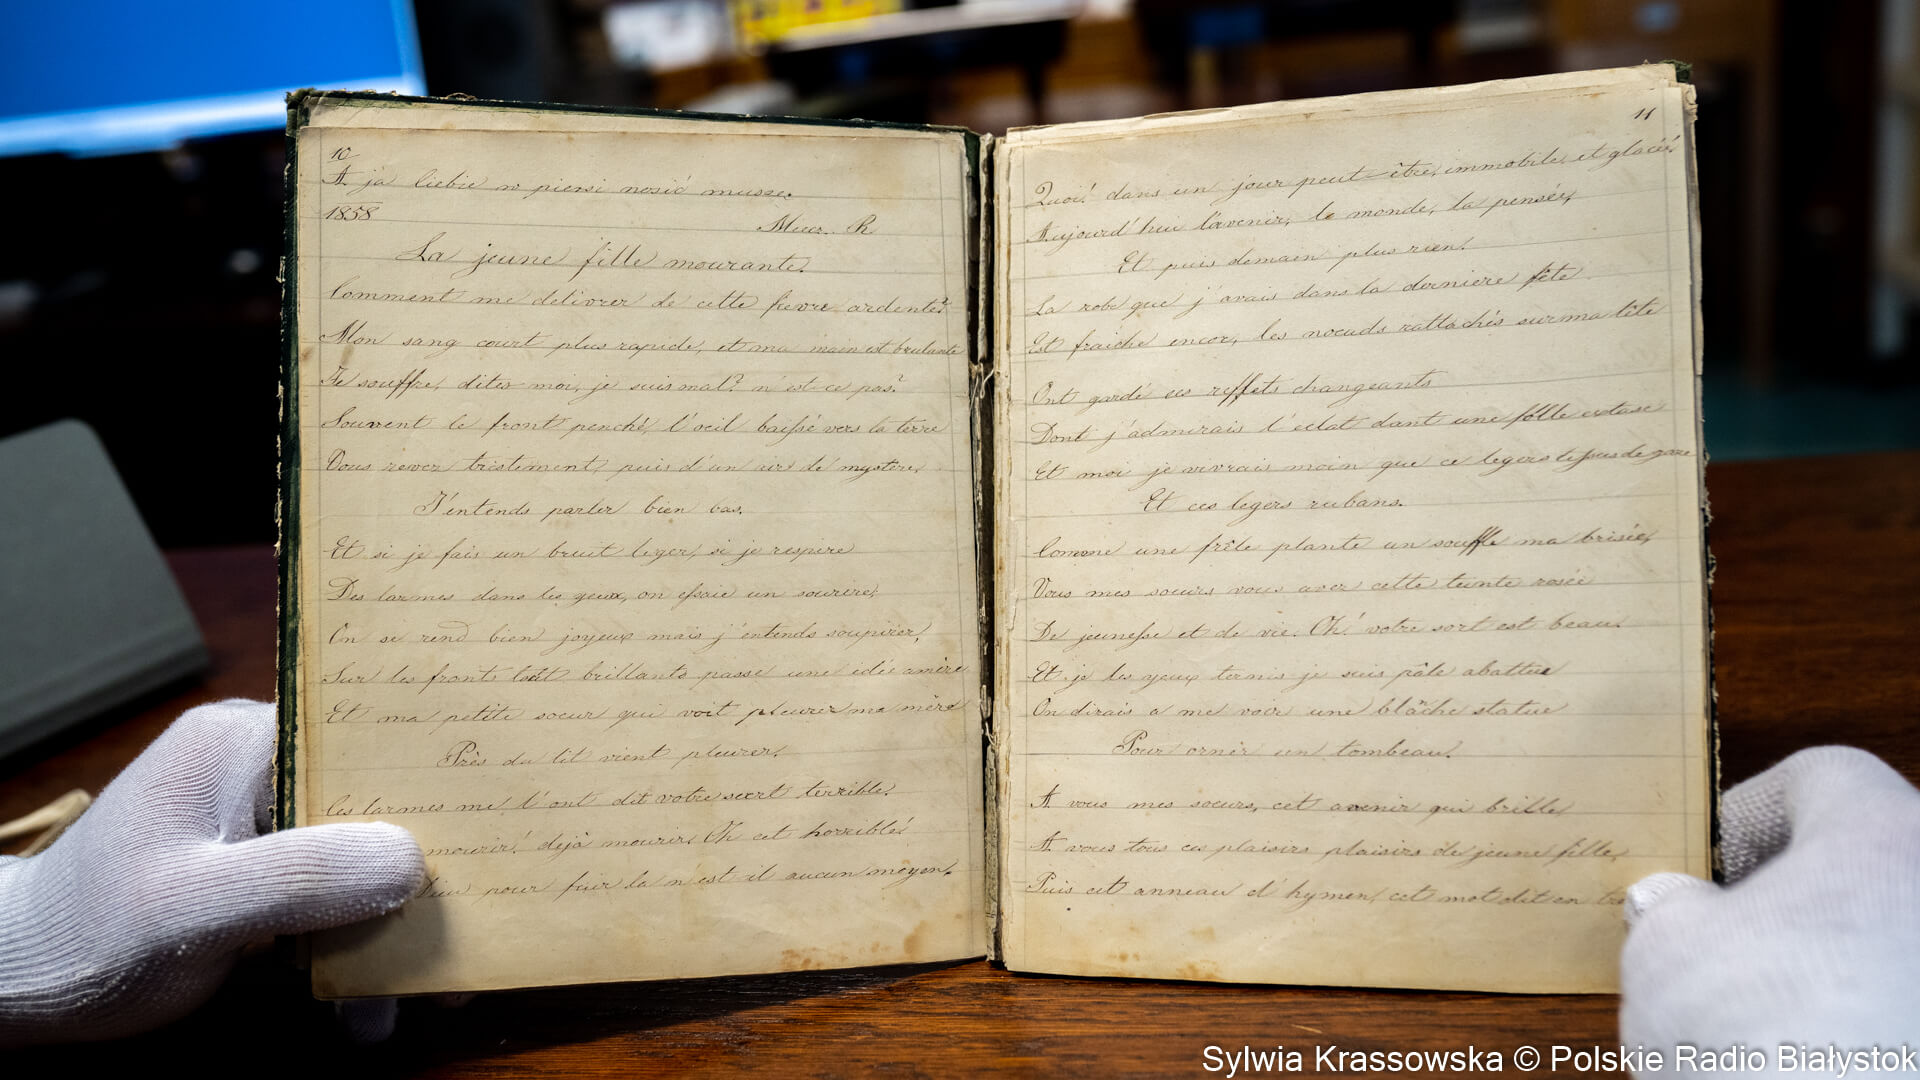 10
A ja ciebie w piersi nosić muszę.
1858
Miecz. R
La jeune fille mourante.
Comment me délivrer de cette fievre ardente?
Mon sang court plus rapide, et ma main est brulante
Je souffre, dites moi, je suis mal? n'est-ce pas?
Souvent le front penché, l'oeil baissé vers la terre
Vous rever tristement, puis d'un air de mystère,
J'entends parler bien bas.
Et si je fais un bruit leger, si je respire
Des larmes dans les yeux, on essaie un sourire,
On se rend bien joyeux mais j'entends soupirer,
Sur les fronts tout brillants passe une idée amère
Et ma petite soeur qui voit pleurer ma mère
Près du lit vient pleurer.
Ces larmes me l'ont dit votre secret terrible.
mourir! dejà mourir. Oh cet horrible!
Dieu pour fuir la n'est il aucun moyen.
11
Quoi! dans un jour peut-être, immobile, et glacée!
Aujourd'hui l'avenir, le monde, la pensée,
Et puis demain plus rien!
La robe que j'avais dans la derniere fête
Est fraiche encor, les noeuds rattachés sur ma tête
Ont gardé ces reffets changeants
Dont j'admirais l'éclat dant une folle extase
Et moi je vivrais moin que ce legers tissus de gaze
Et ces legers rubans.
Comme une frêle plante un souffle ma brisée,
Vous mes soeurs vous avez cette teinte rosée
De jeunesse et de vie. Oh! votre sort est beau.
Et je les yeux ternis je suis pâle abattue
On dirais a me voir une blâche statue
Pour ornér un tombeau!
A vous mes soeurs, cet avenir qui brille,
A vous tous ces plaisirs plaisirs de jeune fille,
Puis cet anneau d'hymen, cet mot dit en
Sylwia Krassowska © Polskie Radio Białystok